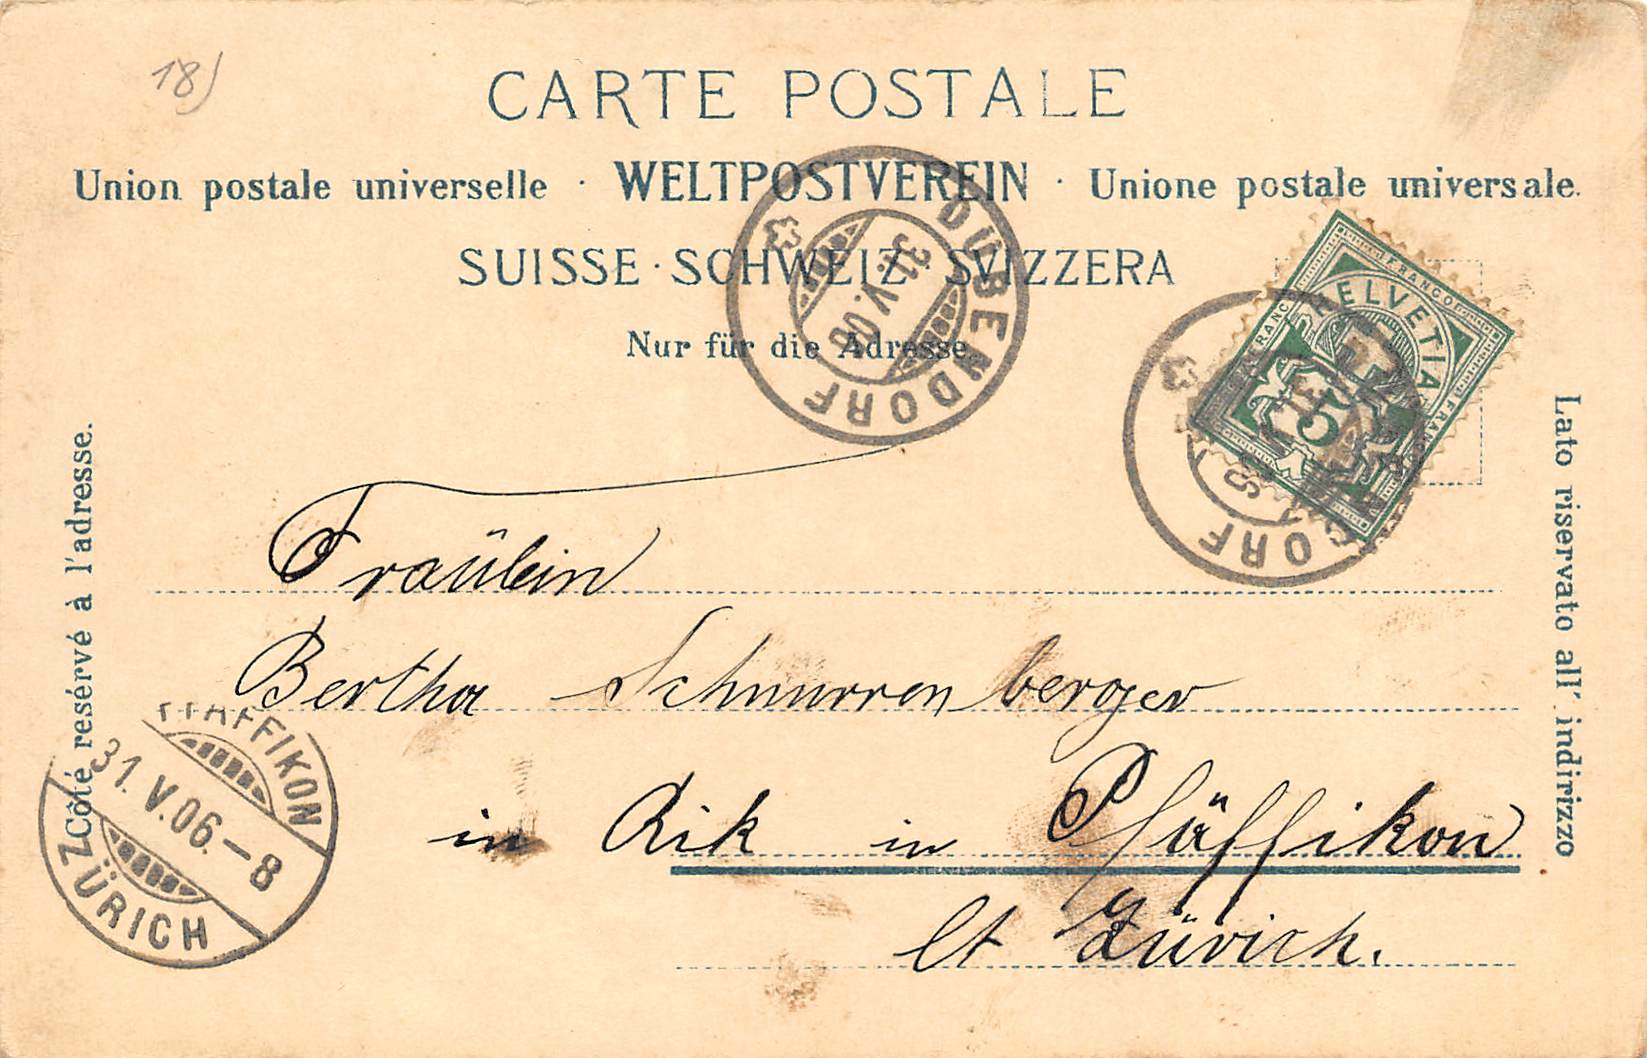 18)
CARTE POSTALE
Union postale universelle · WELTPOSTVEREIN · Unione postale universale.
SUISSE · SCHWEIZ · SVIZZERA
Nur für die Adresse
DÜBENDORF
31.V.06
HELVETIA
FRANCO
FRANCO
FRANCO
5
DORF
Côté resérvé à l'adresse.
Lato riservato all' indirizzo
Fraülein
Bertha Schnurrenberger
in Rik in Pfäffikon
Ct Zürich.
PFÄFFIKON
31.V.06.–8
ZÜRICH